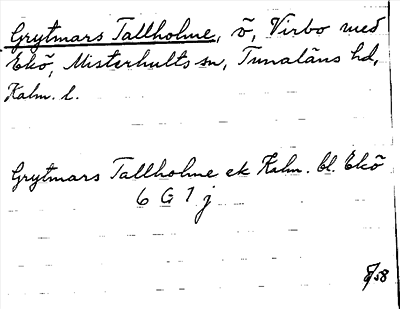 Grytmars Tallholme, ö, Virbo med
Ekö, Misterhults sn, Tunaläns hd,
Kalm. l.
Grytmars Tallholme ek Kalm. bl. Ekö
6 G 7 j
8/58